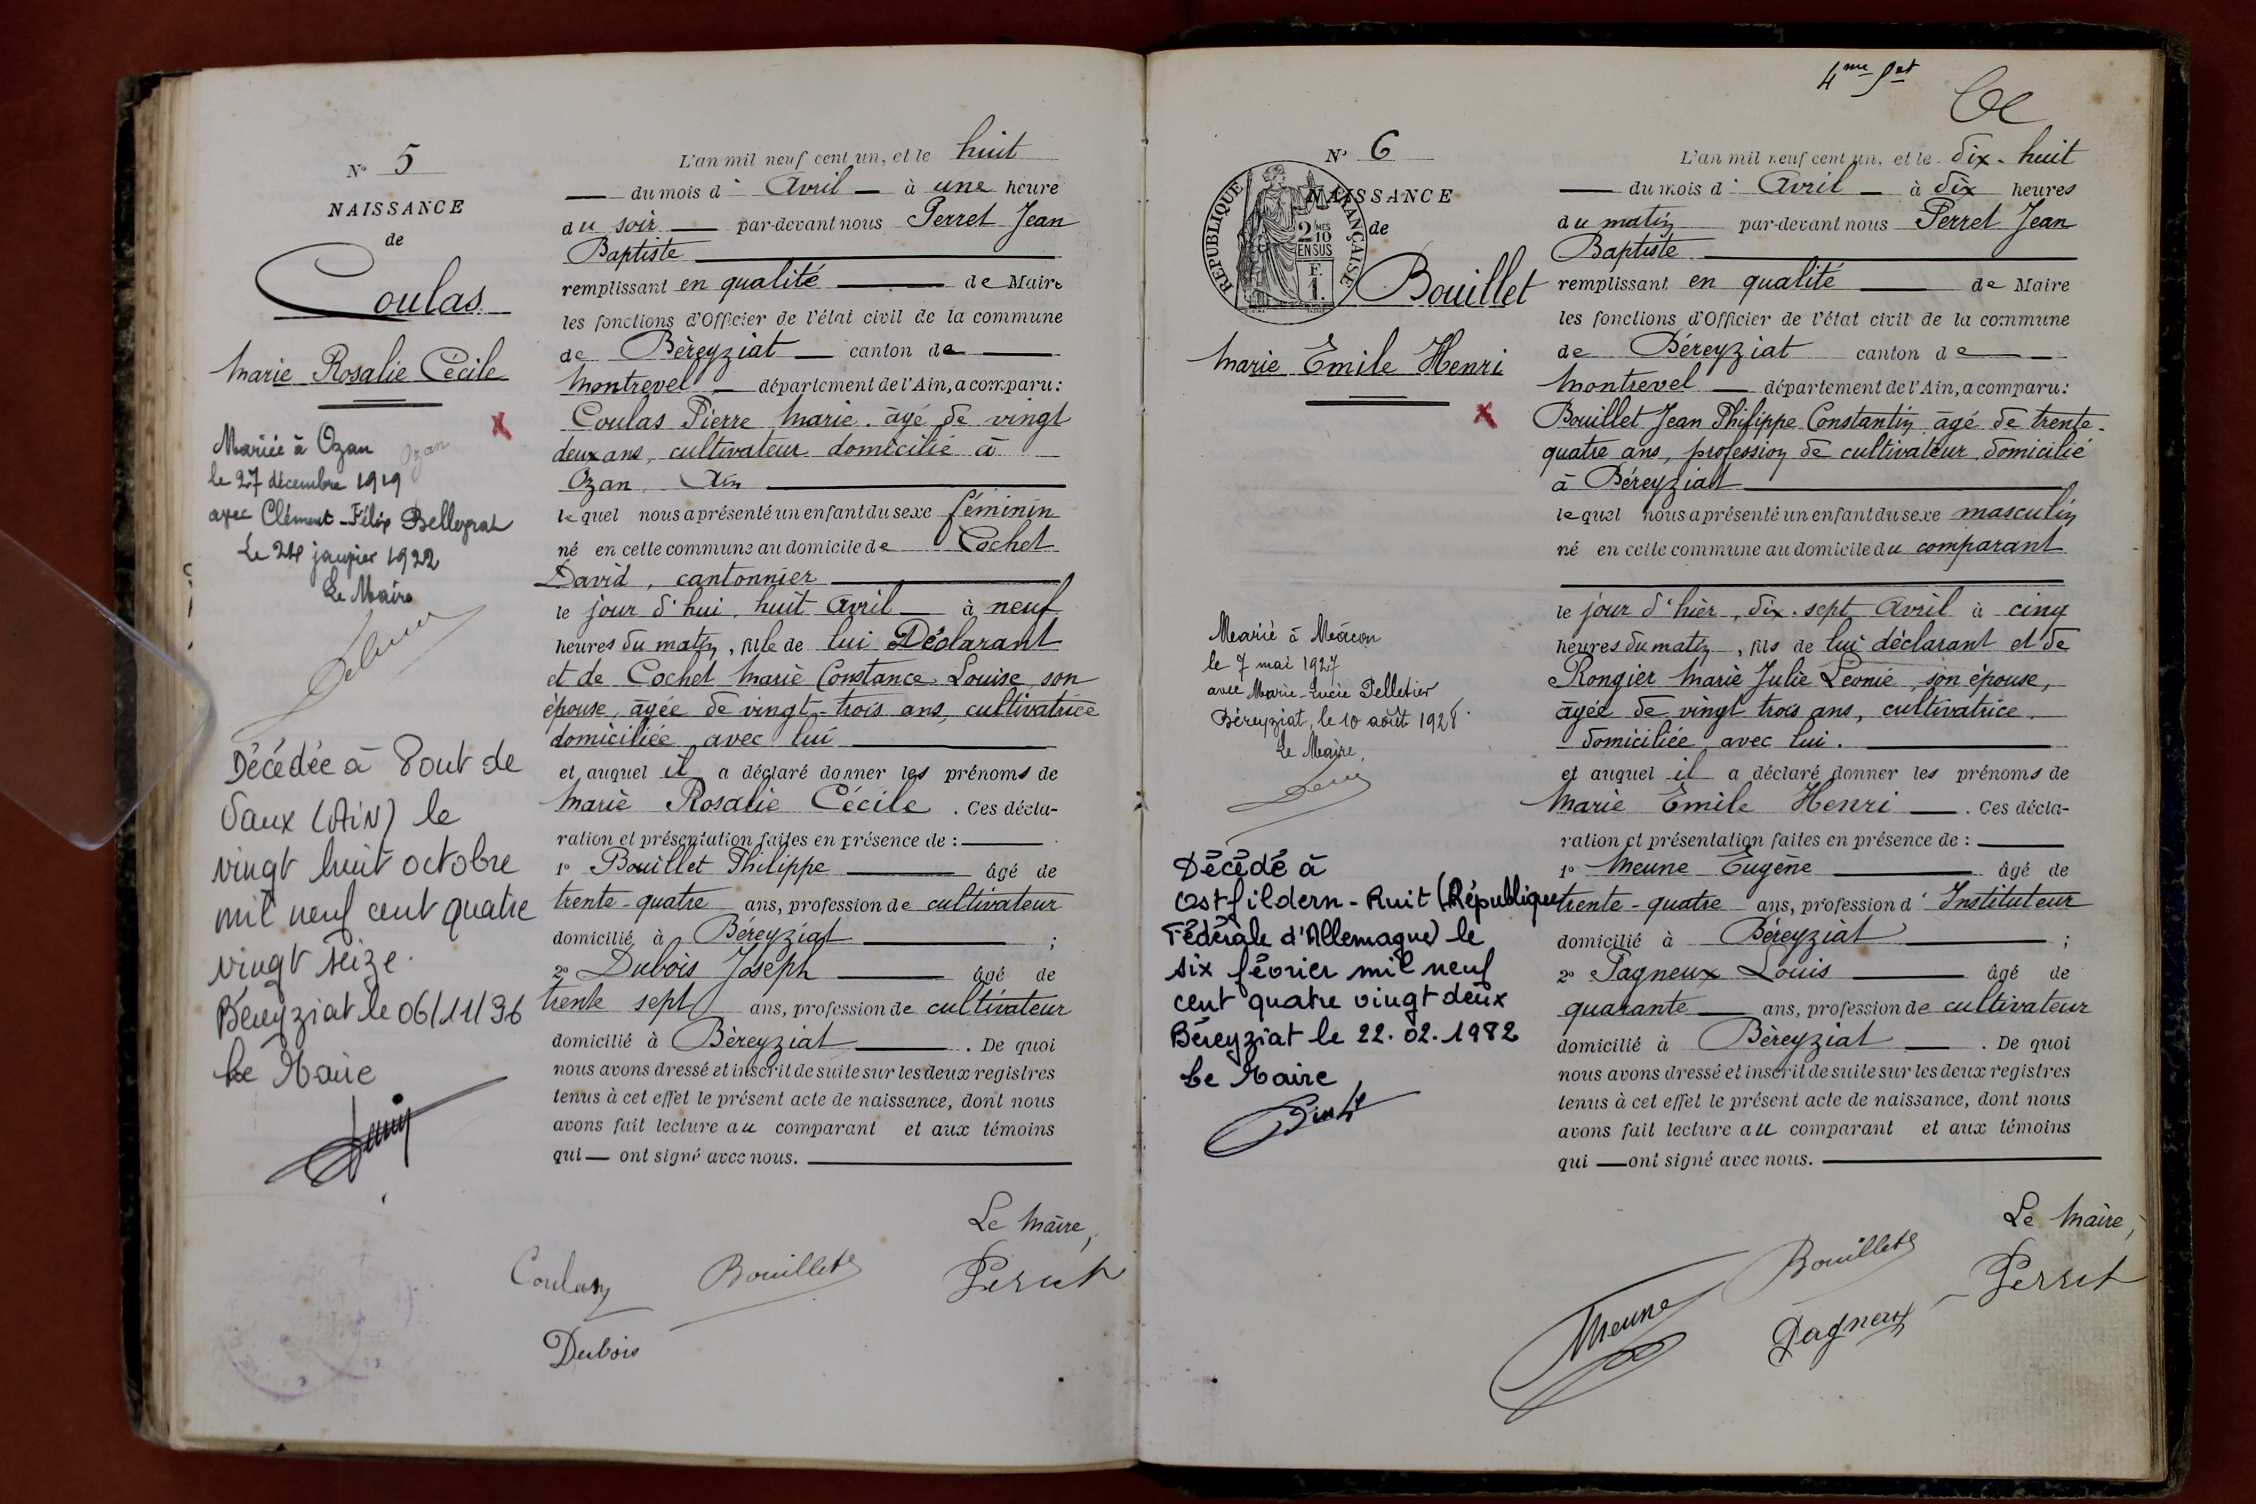 N° 5
NAISSANCE
de
Coulas
Marie Rosalie Cécile
Mariée à Ozan
Ozan
le 27 décembre 1919
avec Clément-Félix Belleyrat
Le 24 janvier 1922
Le Maire
Décédée à Pont de
Vaux (AIN) le
vingt huit octobre
mil neuf cent quatre
vingt seize.
Béreyziat le 06/11/96
Le Maire
L'an mil neuf cent un, et le huit
du mois d' Avril à une heure
du soir par-devant nous Perret Jean
Baptiste
remplissant en qualité de Maire
les fonctions d'Officier de l'état civil de la commune
de Béreyziat canton de
Montrevel département de l'Ain, a comparu :
Coulas Pierre Marie. âgé de vingt
deux ans, cultivateur domicilié à
Ozan, Ain
lequel nous a présenté un enfant du sexe féminin
né en cette commune au domicile de Cochet
David, cantonnier
le jour d'hui, huit Avril à neuf
heures du matin, fille de lui Déclarant
et de Cochet Marie Constance Louise, son
épouse, âgée de vingt-trois ans, cultivatrice
domiciliée avec lui
et auquel il a déclaré donner les prénoms de
Marie Rosalie Cécile. Ces décla-
ration et présentation faites en présence de :
1° Bouillet Philippe âgé de
trente-quatre ans, profession de cultivateur
domicilié à Béreyziat ;
2° Dubois Joseph âgé de
trente sept ans, profession de cultivateur
domicilié à Béreyziat. De quoi
nous avons dressé et inscrit de suite sur les deux registres
tenus à cet effet le présent acte de naissance, dont nous
avons fait lecture au comparant et aux témoins
qui ont signé avec nous.
Le Maire,
Coulas Bouillet Perret
Dubois
4me
N° 6
NAISSANCE
de
RÉPUBLIQUE FRANÇAISE
2 MES
10
EN SUS
F.
1.
Bouillet
Marie Emile Henri
Marié à Mâcon
le 7 mai 1927
avec Marie-Lucie Pelletier
Béreyziat, le 10 août 1928.
Le Maire,
Décédé à
Ostfildern-Ruit (République
Fédérale d'Allemagne) le
six février mil neuf
cent quatre vingt deux
Béreyziat le 22.02.1982
Le Maire
L'an mil neuf cent un, et le dix-huit
du mois d' Avril à dix heures
du matin par-devant nous Perret Jean
Baptiste
remplissant en qualité de Maire
les fonctions d'Officier de l'état civil de la commune
de Béreyziat canton de
Montrevel département de l'Ain, a comparu :
Bouillet Jean Philippe Constantin âgé de trente-
quatre ans, profession de cultivateur, domicilié
à Béreyziat
lequel nous a présenté un enfant du sexe masculin
né en cette commune au domicile du comparant
le jour d'hier, dix-sept Avril à cinq
heures du matin, fils de lui déclarant et de
Rongier Marie Julie Léonie, son épouse,
âgée de vingt trois ans, cultivatrice
domiciliée avec lui.
et auquel il a déclaré donner les prénoms de
Marie Emile Henri. Ces décla-
ration et présentation faites en présence de :
1° Meune Eugène âgé de
trente-quatre ans, profession d' Instituteur
domicilié à Béreyziat ;
2° Pagneux Louis âgé de
quarante ans, profession de cultivateur
domicilié à Béreyziat. De quoi
nous avons dressé et inscrit de suite sur les deux registres
tenus à cet effet le présent acte de naissance, dont nous
avons fait lecture au comparant et aux témoins
qui ont signé avec nous.
Le Maire,
Bouillet Perret
Meune Pagneux